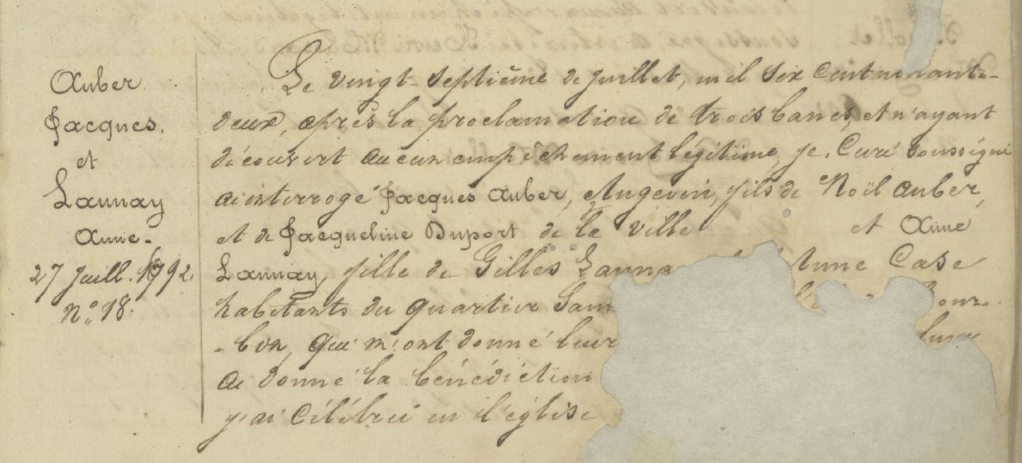 Auber
Jacques,
et
Launay
Anne.
27 Juill. 1692.
N.° 18.
Le vingt-septième de juillet, mil six cent nonante-
deux, après la proclamation de trois bancs, et n'ayant
découvert aucun empêchement légitime, je, Curé soussigné
ai interrogé Jacques Auber, Angevin, fils de Noël Auber,
et de Jacqueline Duport de la ville et Anne
Launay, fille de Gilles Launa Anne Case
habitants du quartier Sain Bour-
-bon, qui m'ont donné leur
ai donné la bénédiction
j'ai célébrée en l'église